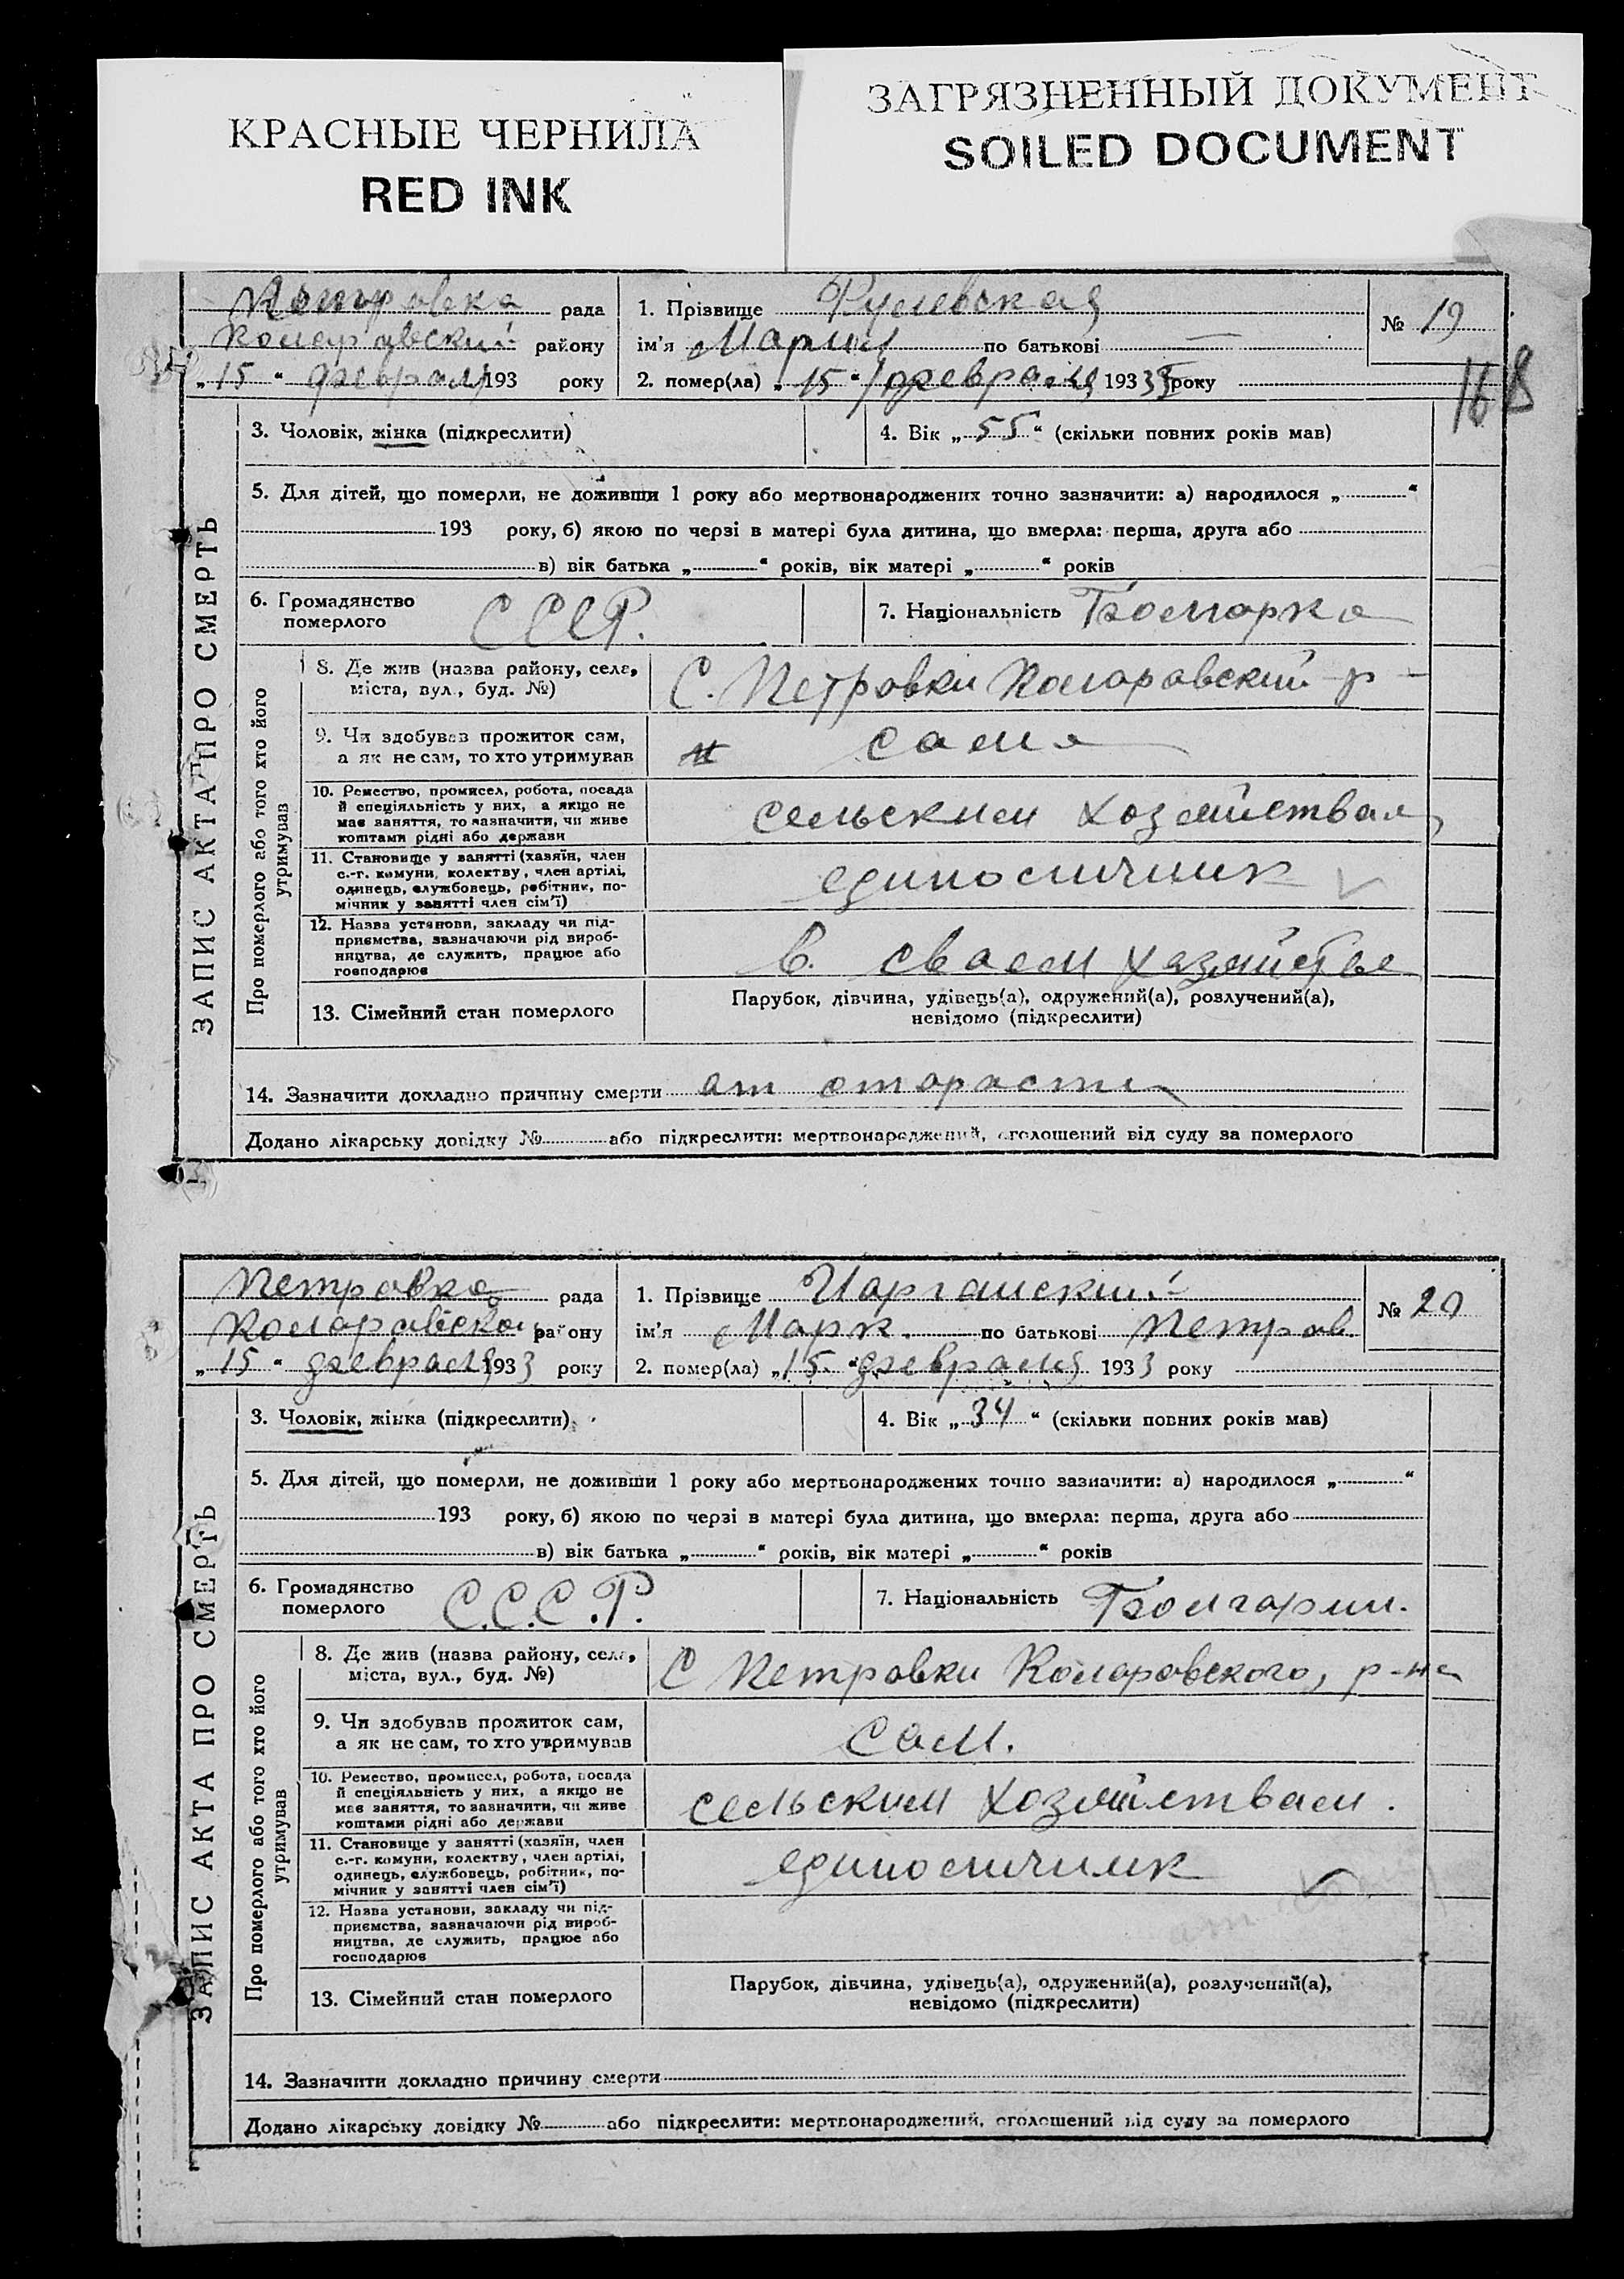 КРАСНЫЕ ЧЕРНИЛА
RED INK
ЗАГРЯЗНЕННЫЙ ДОКУМЕНТ
SOILED DOCUMENT
Петровка рада
Коларовский району
„ 15 “ февраля 193 року
1. Прізвище Рулевская
ім'я Мария по батькові —
2. помер(ла) „ 15 “ февраля 1933 року
№ 19
168
ЗАПИС АКТА ПРО СМЕРТЬ
3. Чоловік, жінка (підкреслити)
4. Вік „ 55 “ (скільки повних років мав)
5. Для дітей, що померли, не доживши 1 року або мертвонароджених точно зазначити: а) народилося „ “
193 року, б) якою по черзі в матері була дитина, що вмерла: перша, друга або
в) вік батька „ “ років, вік матері „ “ років
6. Громадянство
померлого
СССР.
7. Національність Болгарка
Про померлого або того хто його
утримував
8. Де жив (назва району, села,
міста, вул., буд. №)
С. Петровки Коларовский р-
9. Чи здобував прожиток сам,
а як не сам, то хто утримував
сама
10. Ремество, промисел, робота, посада
й спеціяльність у них, а якщо не
має заняття, то зазначити, чи живе
коштами рідні або держави
сельским хозяйствам
11. Становище у занятті (хазяїн, член
с.-г. комуни, колектву, член артілі,
одинець, службовець, робітник, по-
мічник у занятті член сім'ї)
единоличник
12. Назва установи, закладу чи під-
приємства, зазначаючи рід вироб-
ництва, де служить, працює або
господарює
в. сваем
13. Сімейний стан померлого
Парубок, дівчина, удівець(а), одружений(а), розлучений(а),
невідомо (підкреслити)
14. Зазначити докладно причину смерти ат старасти
Додано лікарську довідку № або підкреслити: мертвонароджений, оголошений від суду за померлого
Петровка рада
Коларовского району
„ 15 “ февраля 1933 року
1. Прізвище
ім'я Марк. по батькові Петров.
2. помер(ла) „ 15. “ февраля 1933 року
№ 20
ЗАПИС АКТА ПРО СМЕРТЬ
3. Чоловік, жінка (підкреслити)
4. Вік „ 34 “ (скільки повних років мав)
5. Для дітей, що померли, не доживши 1 року або мертвонароджених точно зазначити: а) народилося „ “
193 року, б) якою по черзі в матері була дитина, що вмерла: перша, друга або
в) вік батька „ “ років, вік матері „ “ років
6. Громадянство
померлого
С.С.С.Р.
7. Національність Болгарин.
Про померлого або того хто його
утримував
8. Де жив (назва району, села,
міста, вул., буд. №)
С Петровки Коларовского, р-на
9. Чи здобував прожиток сам,
а як не сам, то хто утримував
сам.
10. Ремество, промисел, робота, посада
й спеціяльність у них, а якщо не
має заняття, то зазначити, чи живе
коштами рідні або держави
сельским хозяйствам.
11. Становище у занятті (хазяїн, член
с.-г. комуни, колектву, член артілі,
одинець, службовець, робітник, по-
мічник у занятті член сім'ї)
единоличник
12. Назва установи, закладу чи під-
приємства, зазначаючи рід вироб-
ництва, де служить, працює або
господарює
13. Сімейний стан померлого
Парубок, дівчина, удівець(а), одружений(а), розлучений(а),
невідомо (підкреслити)
14. Зазначити докладно причину смерти
Додано лікарську довідку № або підкреслити: мертвонароджений, оголошений від суду за померлого